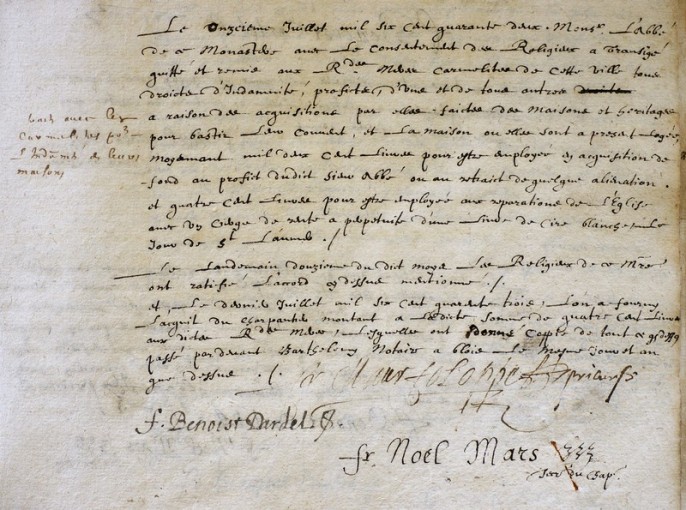 Le onziesme Juillet mil six cent quarante deux Monsr L'abbé
de ce Monastere avec Le consentement des Religieux a transigé
quitté et remis aux Rdes Meres Carmelites de cette ville tous
droicts d'Indamnité, profits, d'une et de tous autres droits
a raison des acquisitions par elles faictes des maisons et heritages
pour bastir Leur Convent, et La maison ou elles sont a present Logées
moyenant mil deux cent Livres pour estre employée en acquisition de
fond au profit dudit sieur abbé ou au retrait de quelque alienation.
et quatre cent Livres pour estre employée aux reparations de L'Église
avec un Cierge de rente a perpetuité d'une Livre de Cire blanche Le
Jour de St Laumer. /
tact avec les
Carmelites por
l'Indamnité de leurs
maisons
Le Landemain douziesme du dit moys Les Religieux de ce Mre
ont ratifié L'accord cy dessus mentionné. /.
et, Le dernier Juillet mil six cent quarente trois, Lon a fourny
L'acquit du Charpentier montant a Ladicte somme de quatre cent Livres
aux dictes Rdes Meres, Lesquelles ont donné Coppie de tout cy dessus
passé par devant Barthelemy Notaire a blois Le mesme Jour et an
que dessus. /.
f. Benoist Dardel
fr Noel Mars
Secr du Chap.